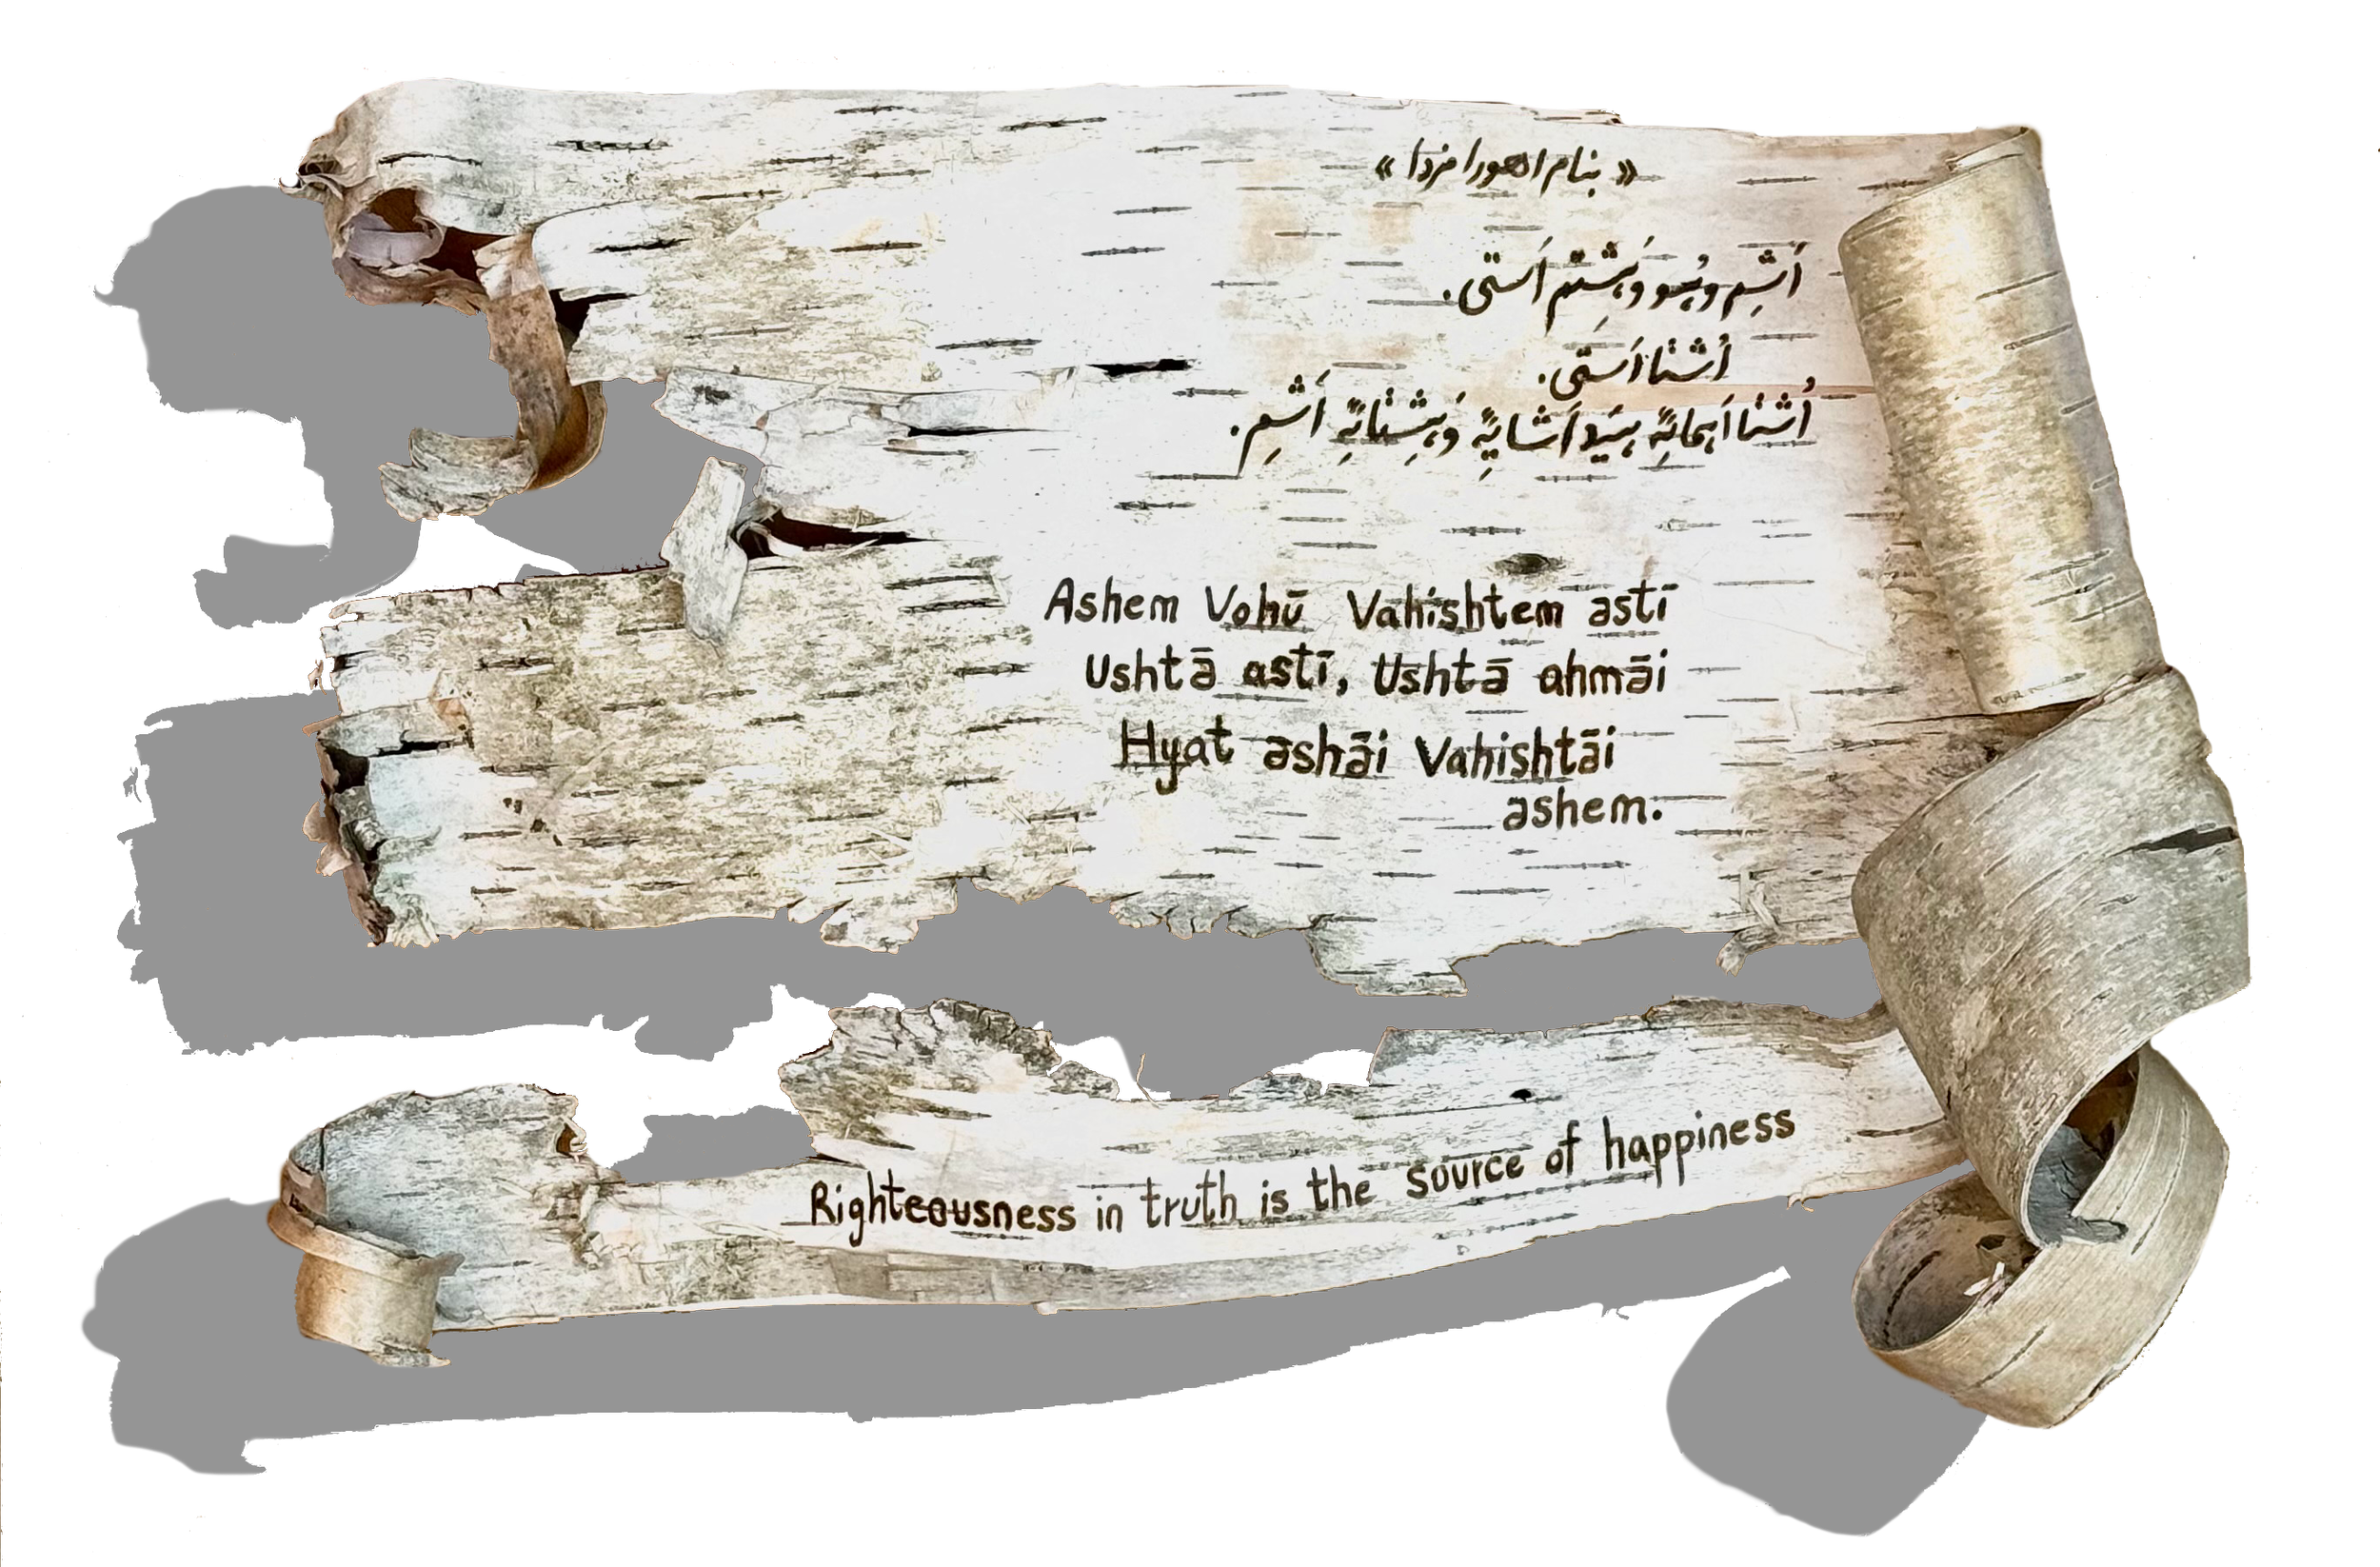 « بنام اهورا مزدا »
اَشِم وُهو وَهیشتِم اَستی.
اُشتا اَستی.
اُشتا اَهمائِه هیَد اَشائِه وَهیشتائِه اَشِم.
Ashem Vohū Vahishtem astī
Ushtā astī, Ushtā ahmāi
Hyat ashāi Vahishtāi
ashem.
Righteousness in truth is the source of happiness